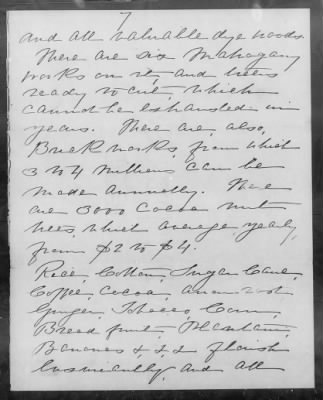 7
and all valuable dye woods.
There are six Mahogany
works on it, and trees
ready to cut, which
cannot be exhausted in
years. There are, also,
Brick works, from which
3 to 4 millions can be
made annually. There
are 3000 Cocoa nut
trees, which average yearly,
from $2 to $4.
Rice, Cotton, Sugar Cane,
Coffee, Cocoa, arrow root
Ginger, Tobacco, Corn,
Bread fruit, Plantain,
Bananas &c, &c
luxuriantly, and all